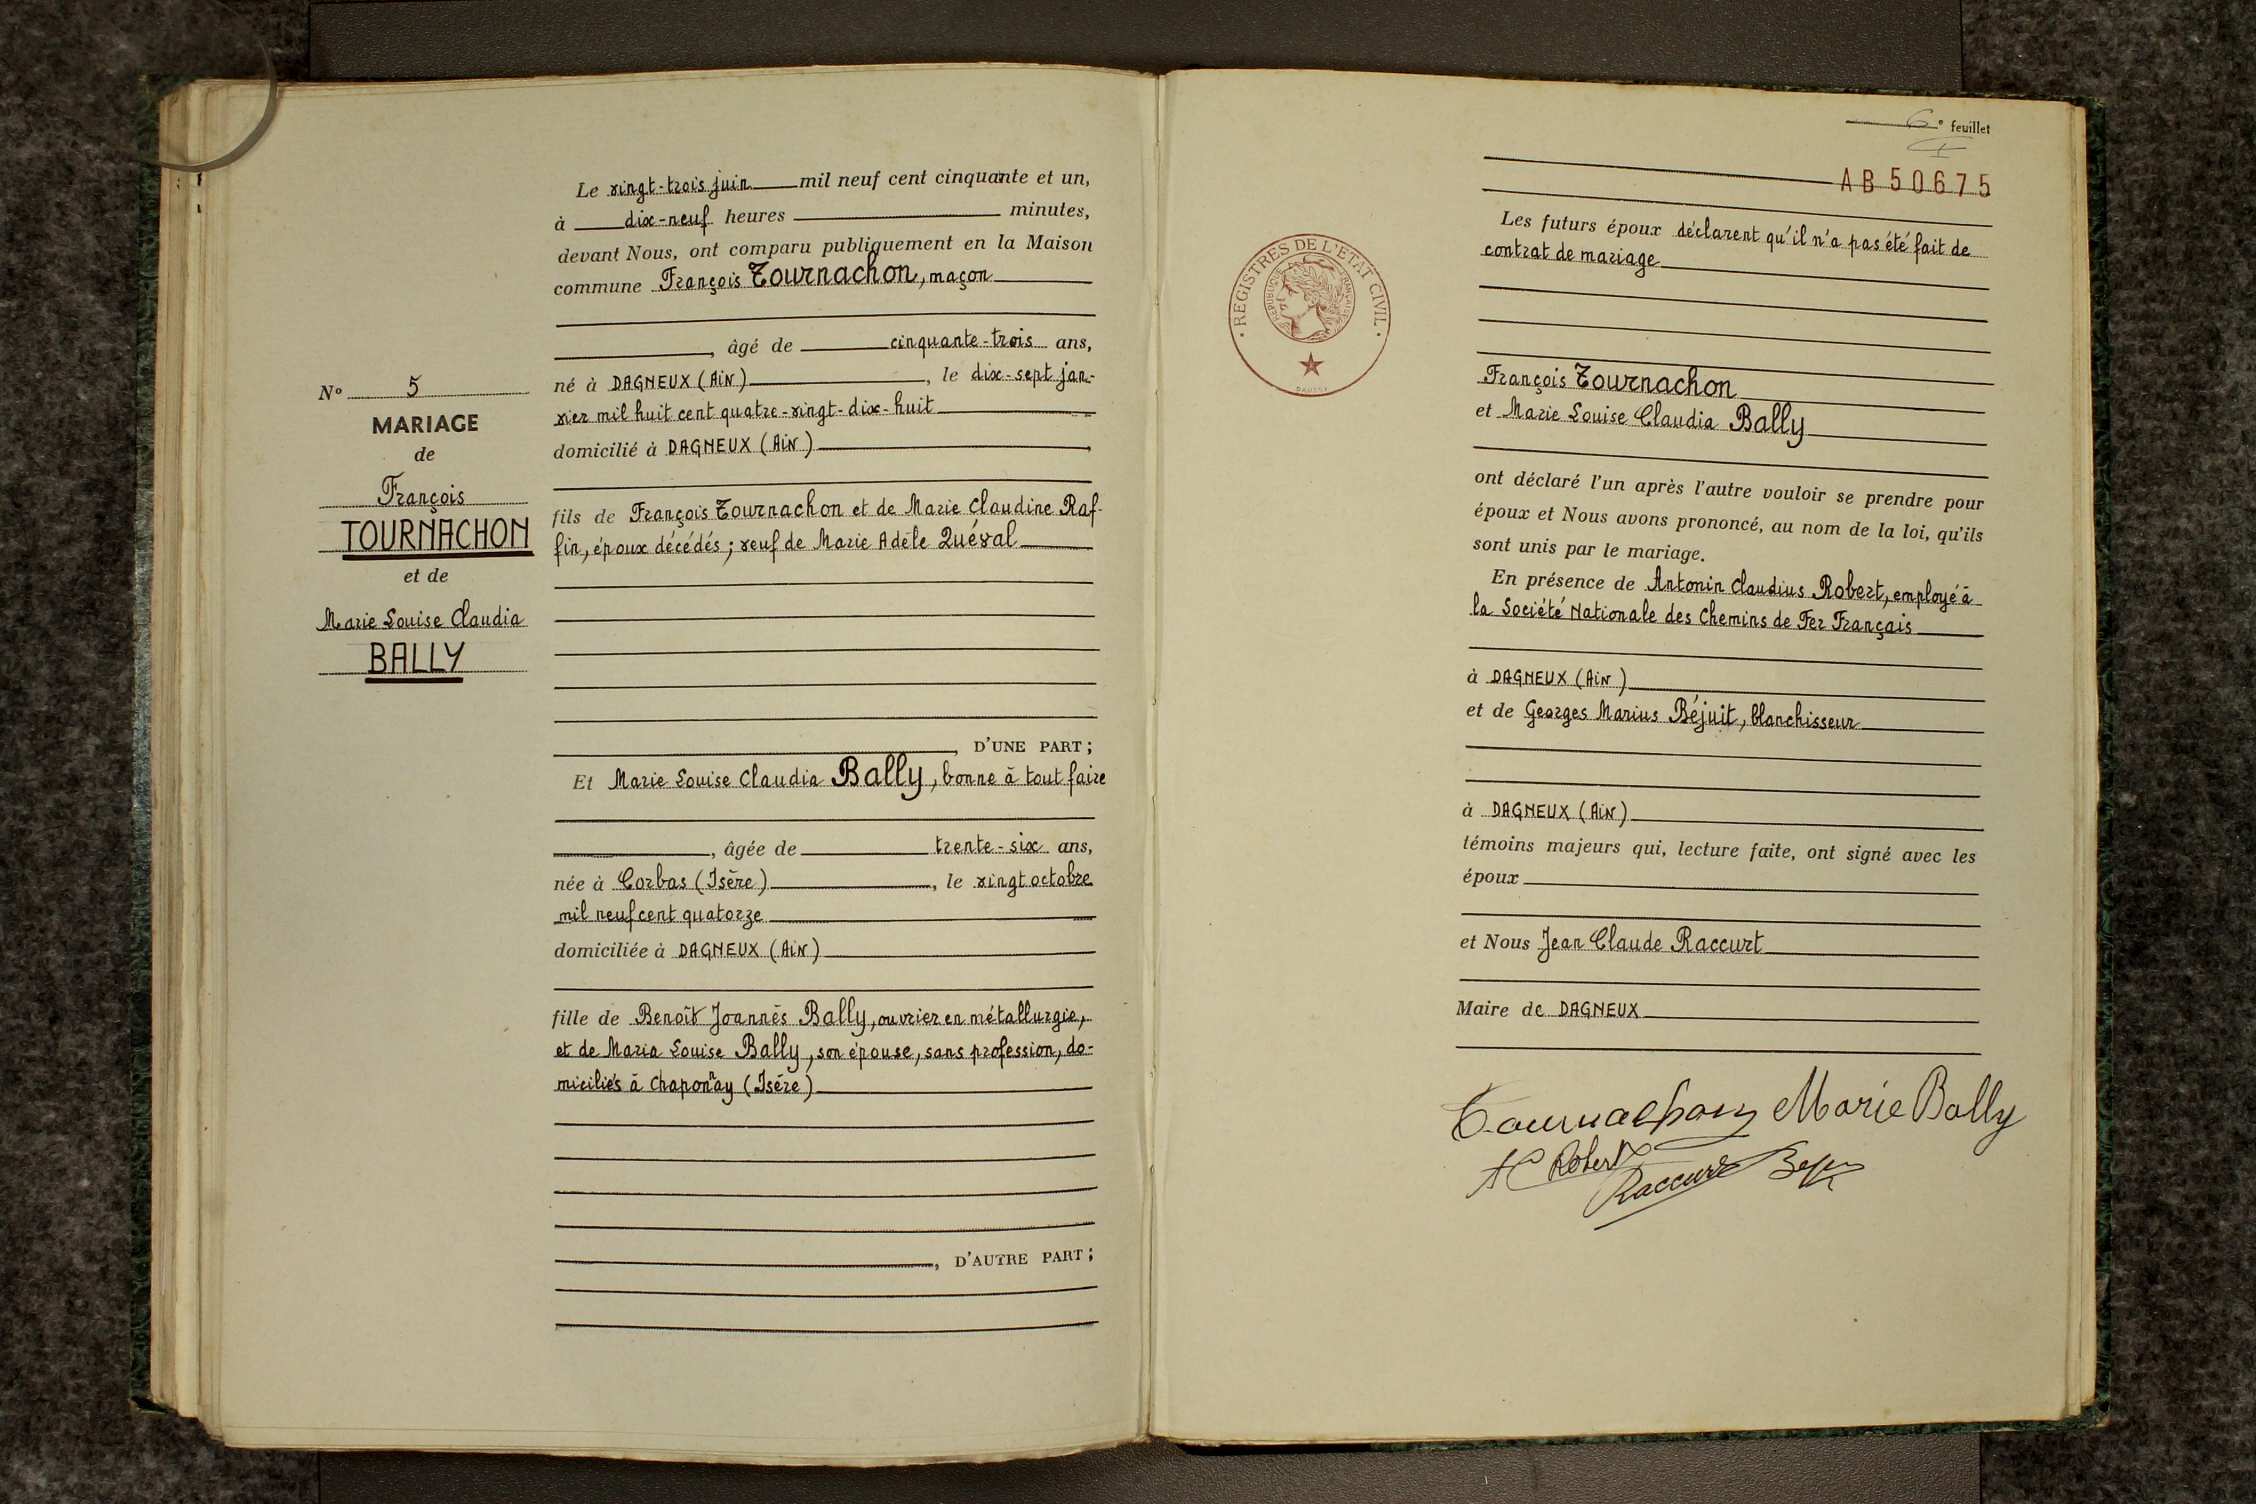 Le vingt-trois juin mil neuf cent cinquante et un,
à dix-neuf heures minutes,
devant Nous, ont comparu publiquement en la Maison
commune François Tournachon, maçon
, âgé de cinquante-trois ans,
né à DAGNEUX (AiN), le dix-sept jan-
vier mil huit cent quatre-vingt-dix-huit
domicilié à DAGNEUX (AiN)
fils de François Tournachon et de Marie Claudine Raf-
fin, époux décédés; veuf de Marie Adèle Quéval
, D'UNE PART;
Et Marie Louise Claudia Bally, bonne à tout faire
, âgée de trente-six ans,
née à Corbas (Isère), le vingt octobre
mil neuf cent quatorze
domiciliée à DAGNEUX (AiN)
fille de Benoît Joannès Bally, ouvrier en métallurgie,
et de Maria Louise Bally, son épouse, sans profession, do-
miciliés à Chaponnay (Isère)
, D'AUTRE PART;
N° 5
MARIAGE
de
François
TOURNACHON
et de
Marie Louise Claudia
BALLY
6e feuillet
AB50675
REGISTRES DE L'ETAT CIVIL
REPUBLIQUE FRANÇAISE
Les futurs époux déclarent qu'il n'a pas été fait de
contrat de mariage
François Tournachon
et Marie Louise Claudia Bally
ont déclaré l'un après l'autre vouloir se prendre pour
époux et Nous avons prononcé, au nom de la loi, qu'ils
sont unis par le mariage.
En présence de Antonin Claudius Robert, employé à
la Société Nationale des Chemins de Fer Français
à DAGNEUX (AiN)
et de Georges Marius Béjuit, blanchisseur
à DAGNEUX (AiN)
témoins majeurs qui, lecture faite, ont signé avec les
époux
et Nous Jean Claude Raccurt
Maire de DAGNEUX
Tournachon Marie Bally
AC Robert
Raccurt